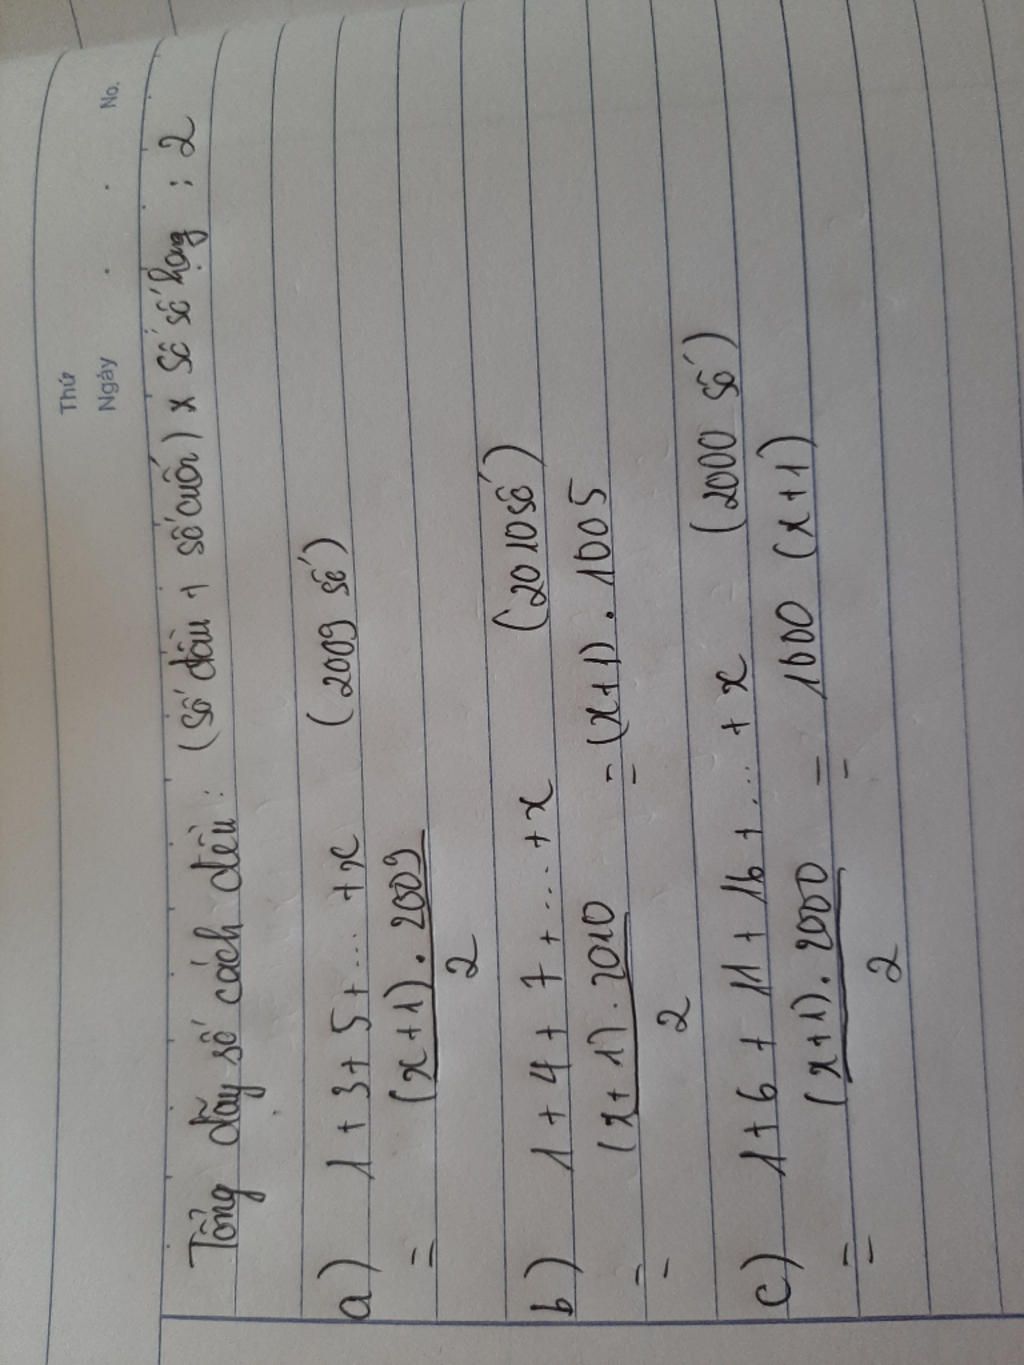 Thứ
Ngày . . No.
Tổng dãy số cách đều: (số đầu + số cuối) x số số hạng : 2
a) 1 + 3 + 5 + ... + x (2009 số)
= (x + 1) . 2009 / 2
b) 1 + 4 + 7 + .... + x (2010 số)
= (x + 1) . 2010 / 2 = (x + 1) . 1005
c) 1 + 6 + 11 + 16 + ... + x (2000 số)
= (x + 1) . 2000 / 2 = 1000 (x + 1)